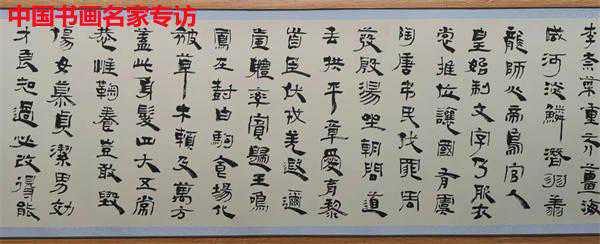 中国书画名家专访
李柰菜重芥薑海
咸河淡鱗潛羽翔
龍師火帝鳥官人
皇始制文字乃服衣
裳推位讓國有虞
陶唐弔民伐罪周
發殷湯坐朝問道
垂拱平章愛育黎
首臣伏戎羌遐邇
壹體率賓歸王鳴
鳳在樹白駒食場化
被草木賴及萬方
蓋此身髮四大五常
恭惟鞠養豈敢毀
傷女慕貞潔男効
才良知過必改得能